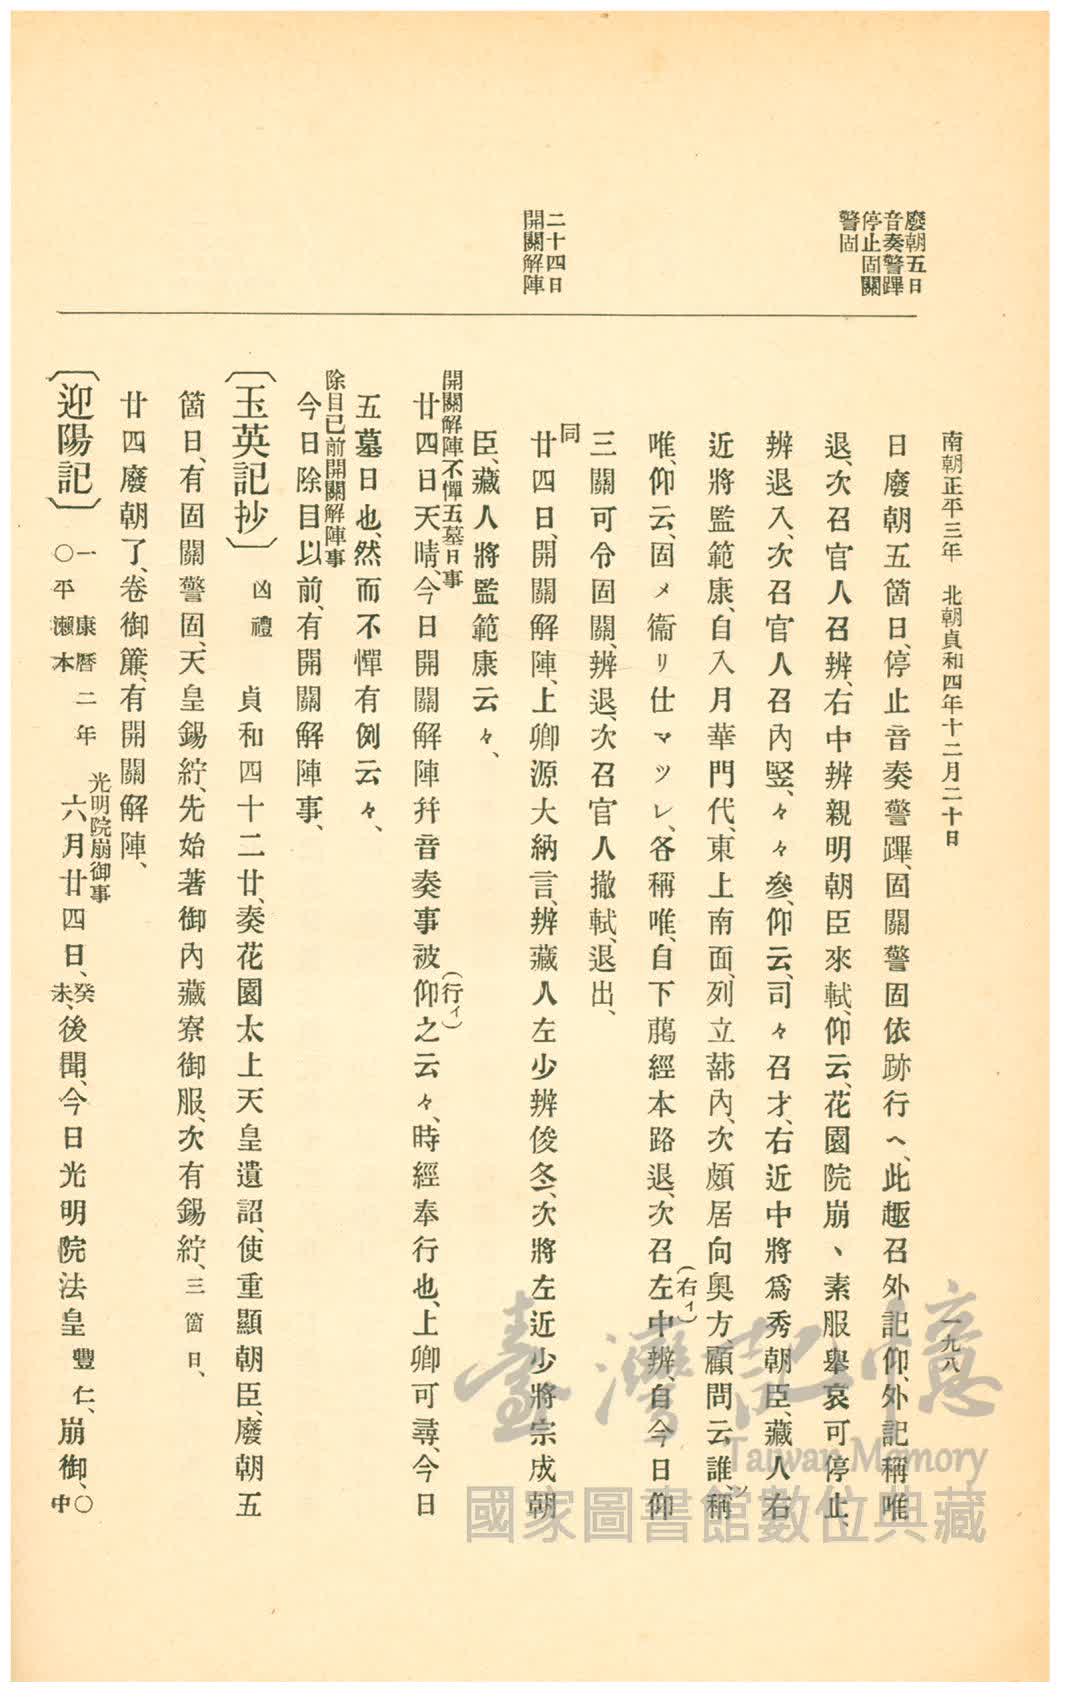 南朝正平三年 北朝貞和四年十二月二十日
一九八
廢朝五日
音奏警蹕
停止固關
警固
二十四日
開關解陣
日廢朝五箇日、停止音奏警蹕、固關警固依跡行ヘ、此趣召外記仰、外記稱唯
退、次召官人召辨、右中辨親明朝臣來軾、仰云、花園院崩、素服舉哀可停止、
辨退入、次召官人召內竪、々々參、仰云、司々召才、右近中將爲秀朝臣、藏人右
近將監範康、自入月華門代、東上南面、列立蔀內、次頗居向奧方、顧問云誰ソ、稱
唯、仰云、固メ衞リ仕マツレ、各稱唯、自下﨟經本路退、次召左(右イ)中辨、自今日仰
三關可令固關、辨退、次召官人撤軾、退出、
同
廿四日、開關解陣、上卿源大納言、辨藏人左少辨俊冬、次將左近少將宗成朝
臣、藏人將監範康云々、
開關解陣不憚五墓日事
廿四日天晴、今日開關解陣幷音奏事被仰(行イ)之云々、時經奉行也、上卿可尋、今日
五墓日也、然而不憚有例云々、
除目已前開關解陣事
今日除目以前、有開關解陣事、
〔玉英記抄〕 凶禮 貞和四十二廿、奏花園太上天皇遺詔、使重顯朝臣、廢朝五
箇日、有固關警固、天皇錫紵、先始著御內藏寮御服、次有錫紵、三箇日、
廿四廢朝了、卷御簾、有開關解陣、
光明院崩御事
〔迎陽記〕 一 康曆二年 ○平瀨本 六月廿四日、癸未、後聞、今日光明院法皇豐仁、崩御、○中
臺灣記憶
Taiwan Memory
國家圖書館數位典藏